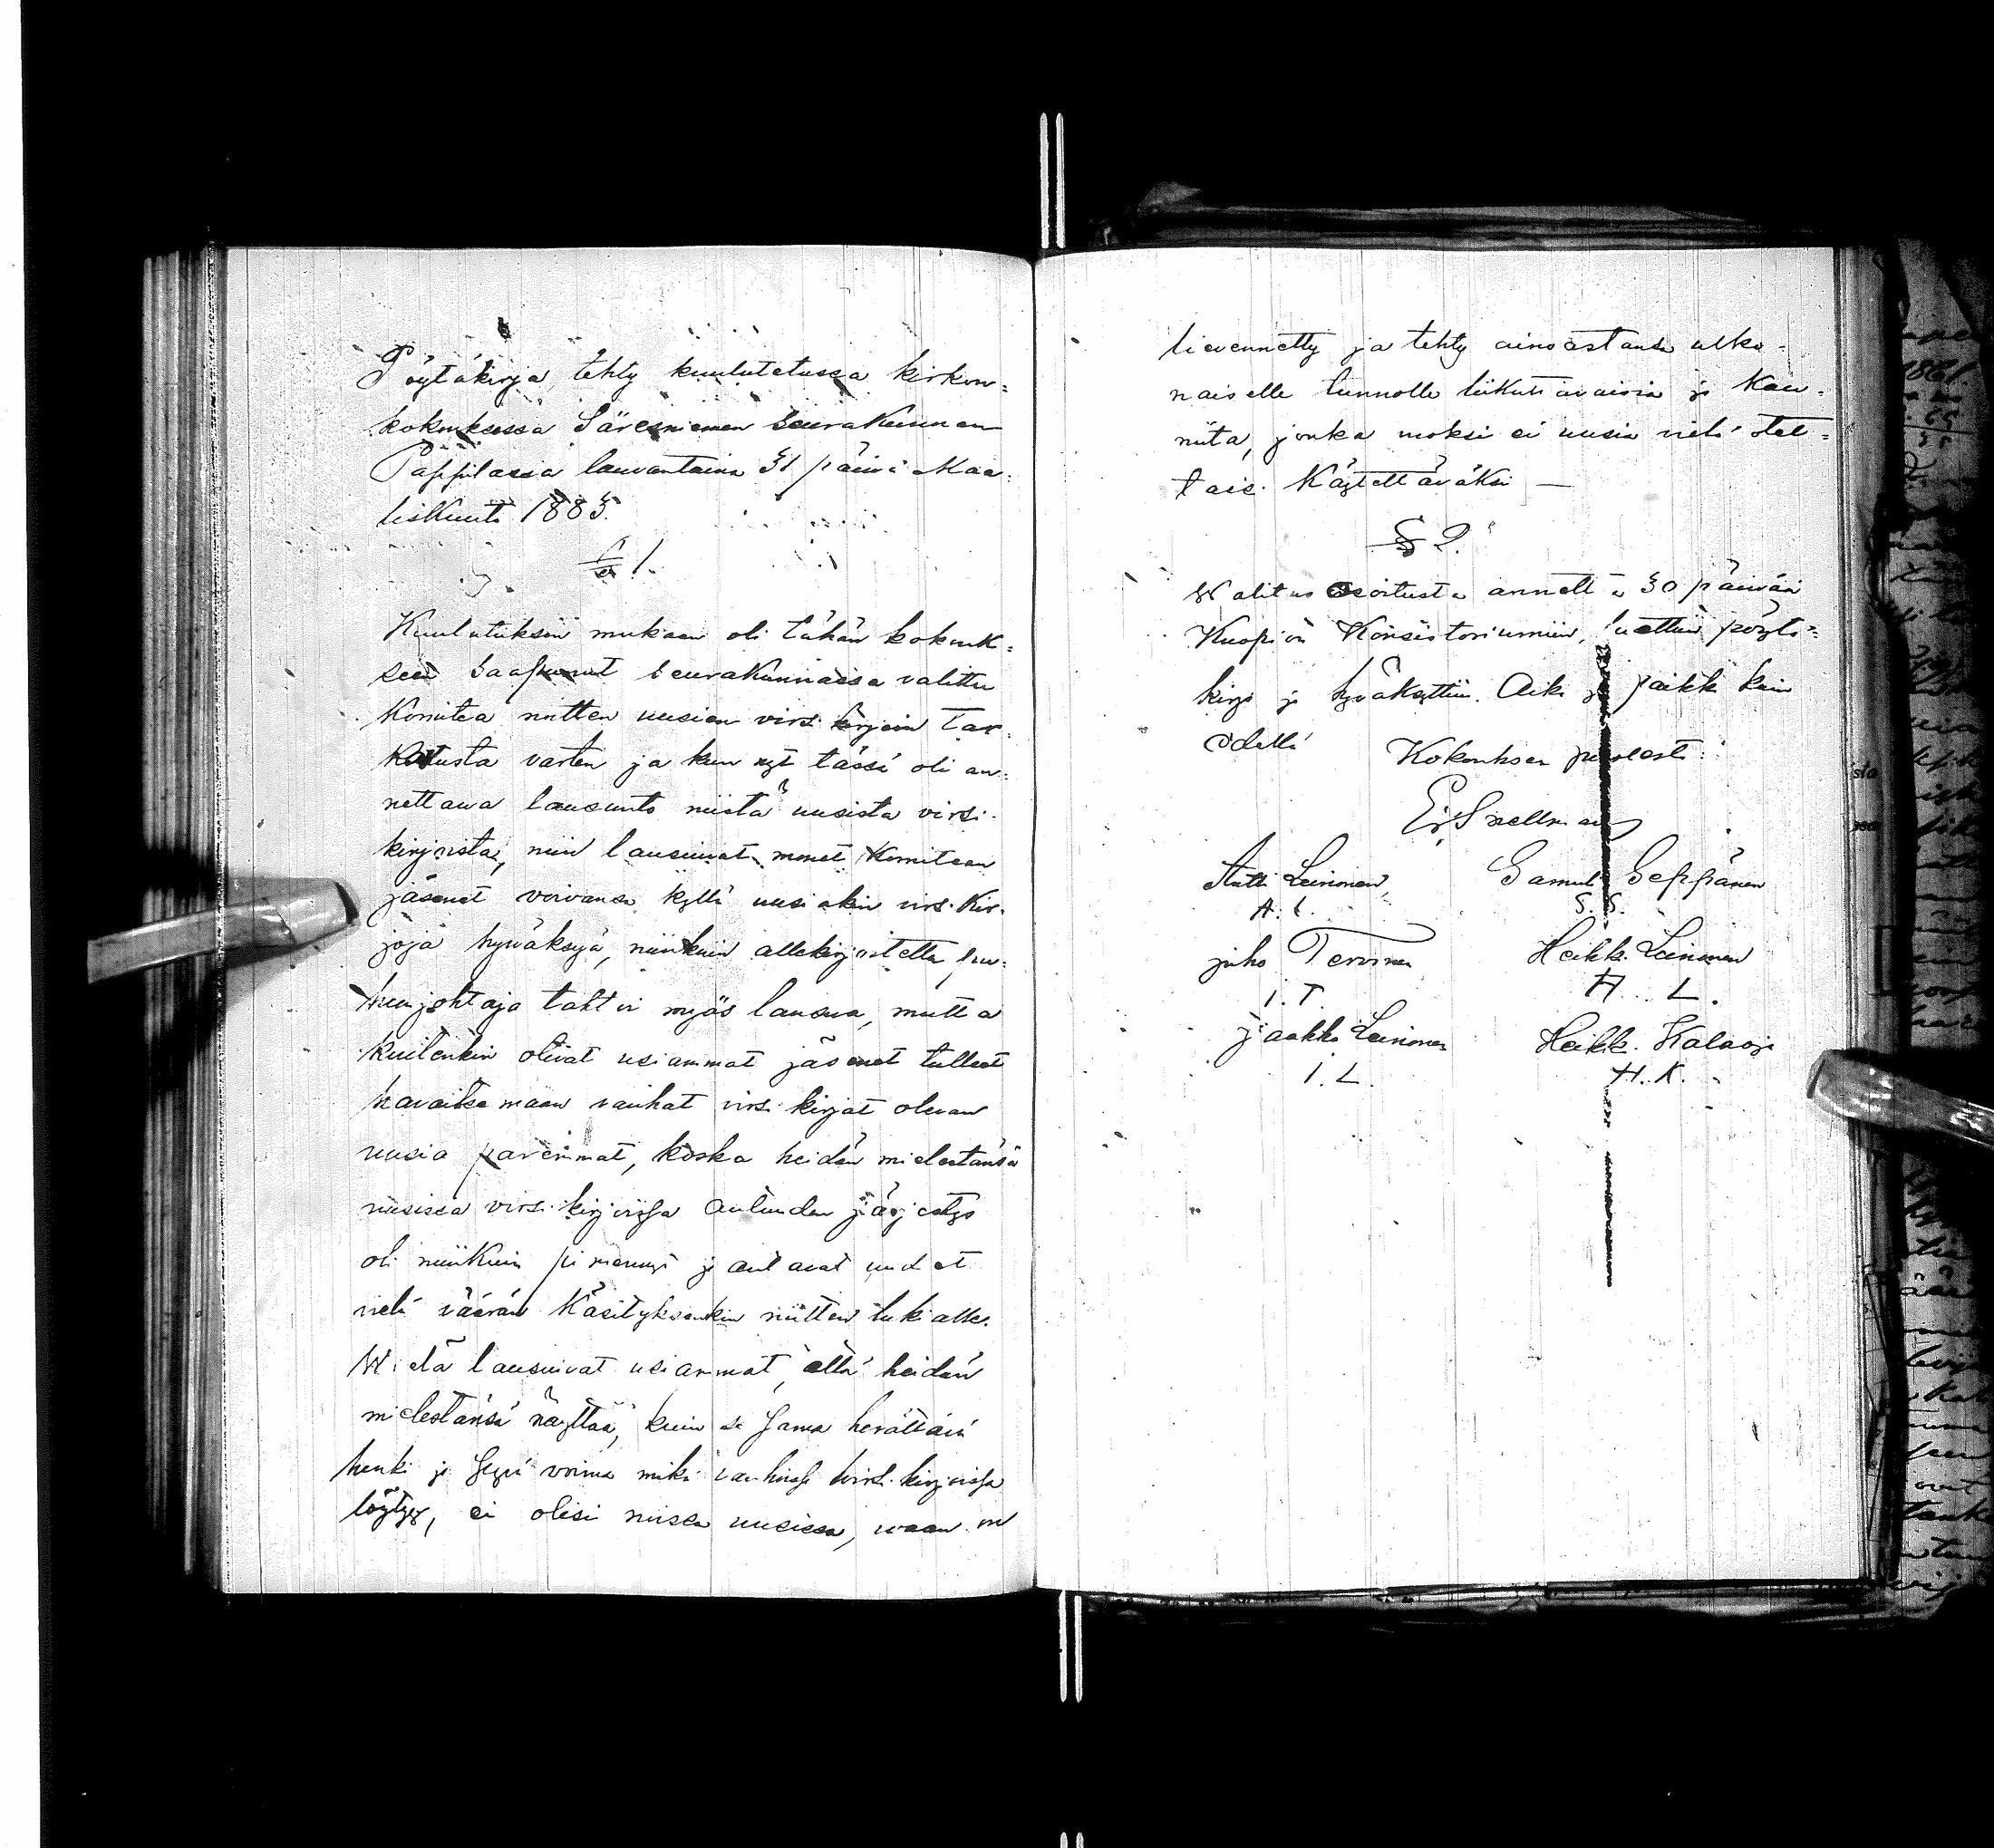 Pöytäkirja, tehty kuulutetussa kirkon-
kokouksessa Säresniemen seurakunnan
Pappilassa lauvantaina 31 päivä Maa-
liskuuta 1883.
§ 1.
Kuulutuksen mukaan oli tähän kokouk-
seen saapunut seurakunnassa valittu
Komitea niitten uusien virsi kirjain tar-
kastusta varten ja kun nyt tässä oli an-
nettawa lausunto niistä uusista virsi-
kirjoista, niin lausuivat monet Komitean
jäsenet voivansa kyllä uusiakin virsi kir-
joja hywäksyä, niinkuin allekirjoitettu pu-
heenjohtaja tahtoi myös lausua, mutta
kuitenkin olivat usiammat jäsenet tulleet
havaitsemaan vanhat virsi kirjat olevan
uusia paremmat, koska heidän mielestänsä
uusissa virsi kirjoissa autuuden järjestys
oli niinkuin pimennyt ja antavat uudet
vielä väärän käsityksenkin niitten lukialle.
Wielä lausuivat usiammat, että heidän
mielestänsä näyttää, kuin se sama herättävä
henki ja syvä voima mikä vanhoissa virsi kirjoissa
löytyy, ei olisi niissä uusissa, waan on
lievennetty ja tehty ainoastansa ulko-
naiselle tunnolle liikuttavaisia ja kau-
niita, jonka vuoksi ei uusia vielä otet-
taisi Käytettäväksi —
§ 2.
Walitus osoitusta annettu 30 päivään
Kuopion Konsistoriumiin, luettiin pöytä-
kirja ja hyväksyttiin. Aika ja paikka kuin
edellä
Kokouksen puolesta:
E. Snellman
Antti Leinonen, Samuli Seppänen
A. L. S. S.
Juho Tervonen Heikki Leinonen
I. T. H. L.
Jaakko Leinonen Heikki Kalaoja
I. L. H. K.